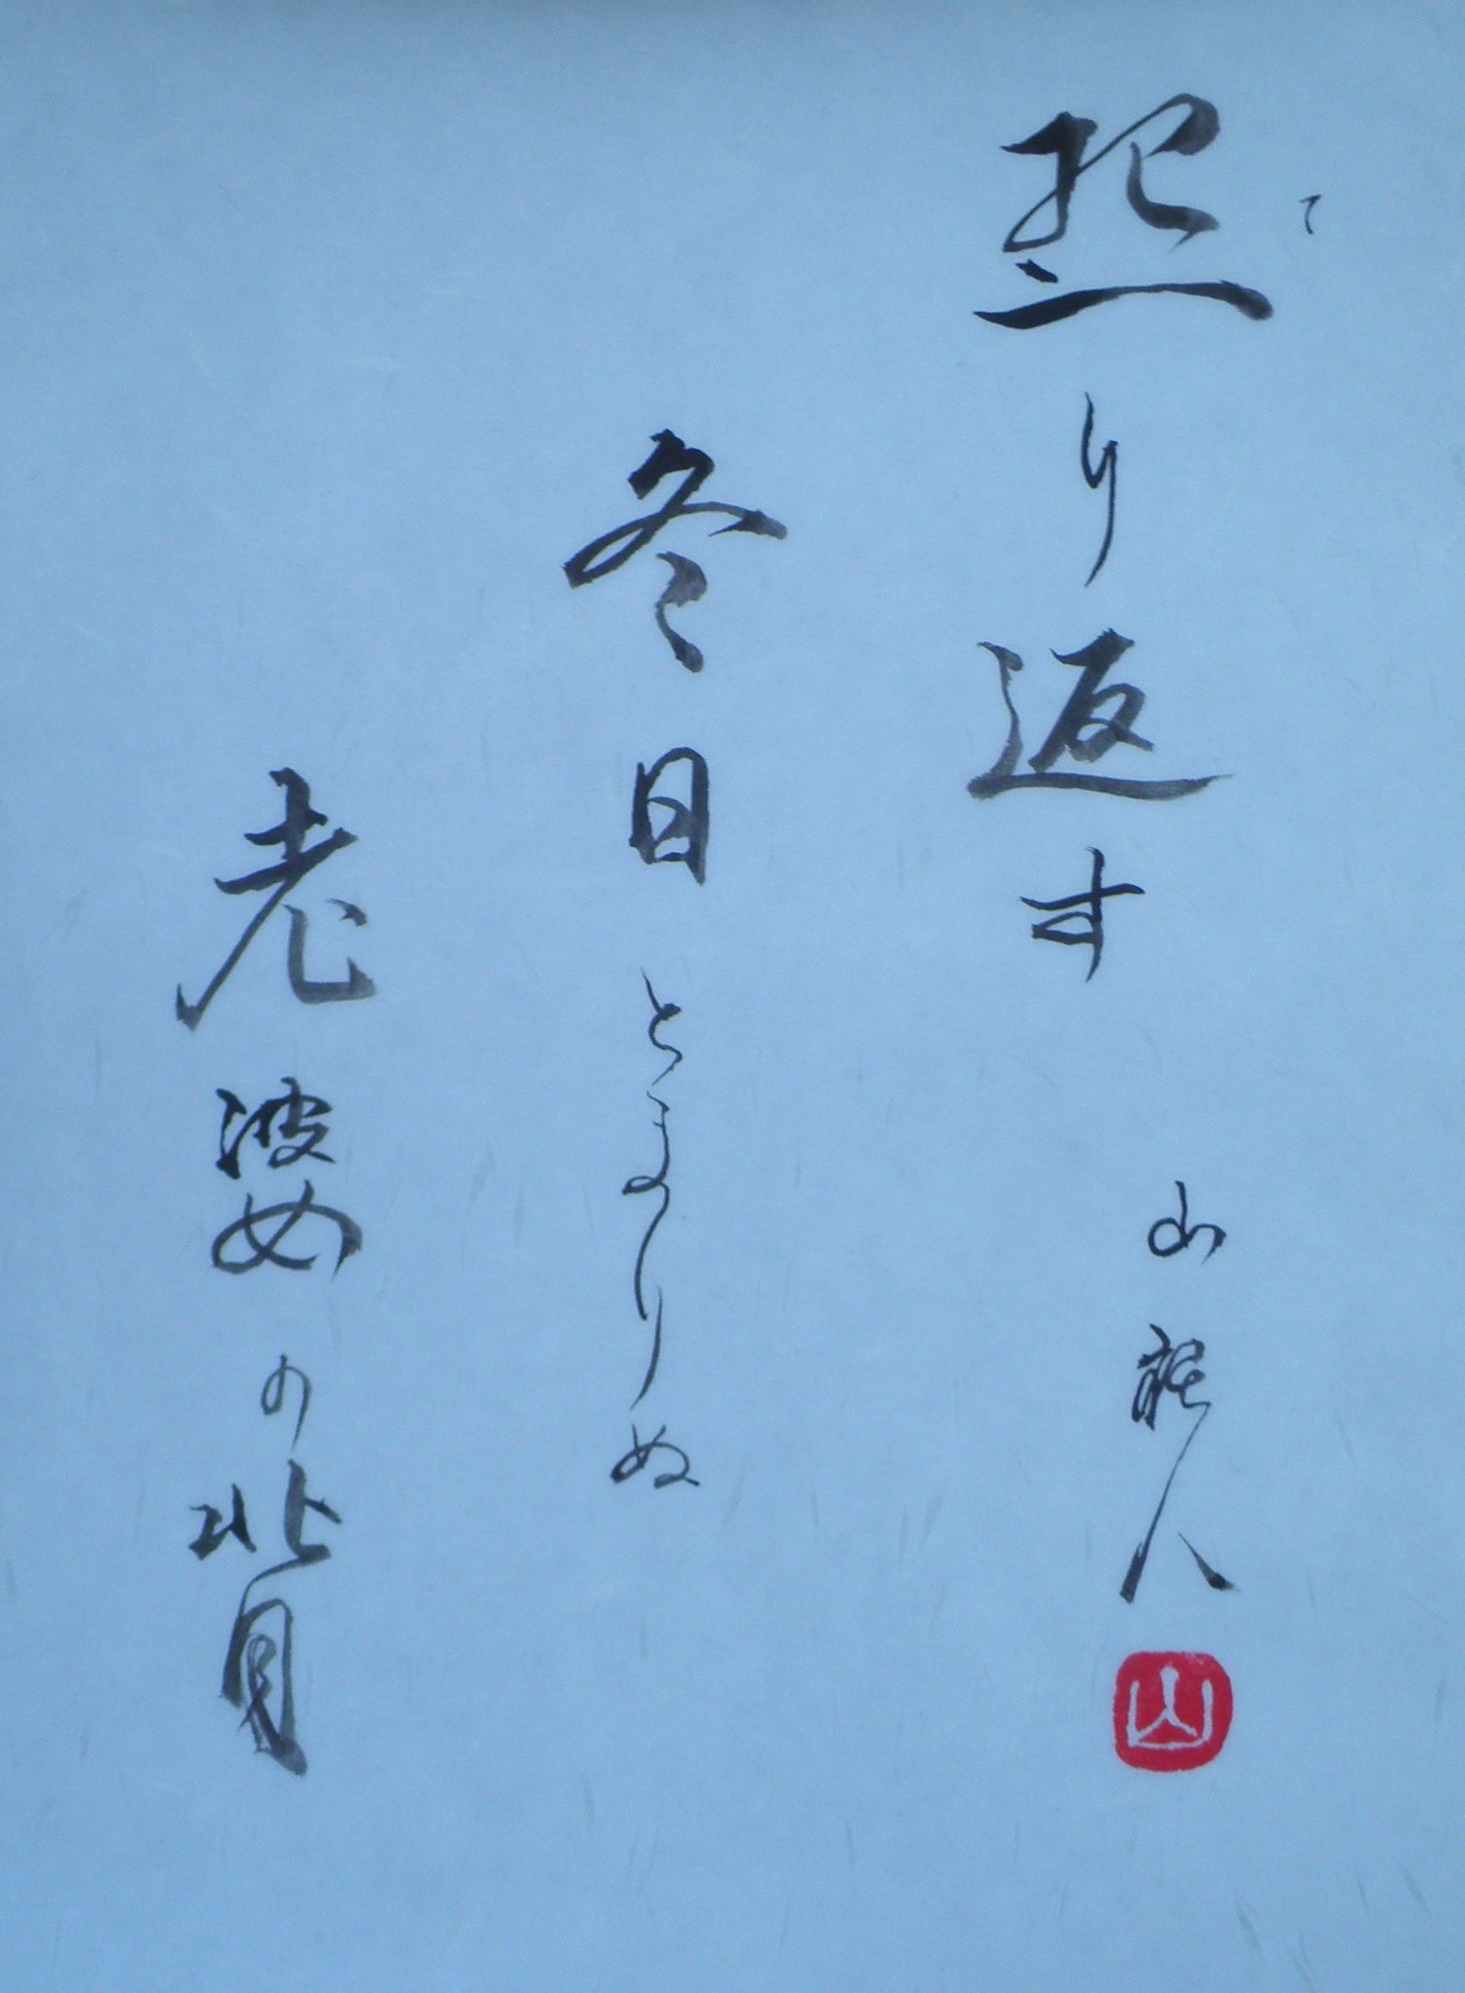 照り返す
て
冬日とまりぬ
老婆の背
山
人
山